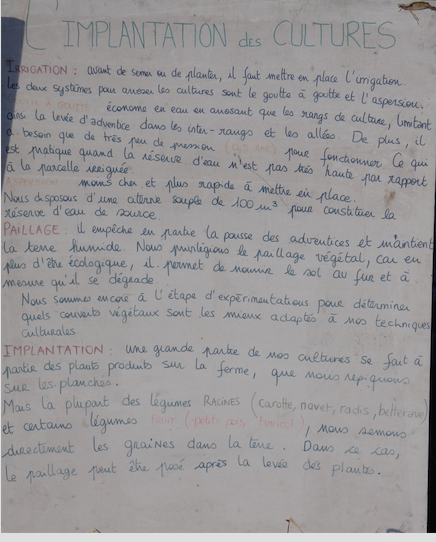 IMPLANTATION des CULTURES
IRRIGATION : avant de semer ou de planter, il faut mettre en place l'irrigation.
Les deux systèmes pour arroser les cultures sont le goutte à goutte et l'aspersion.
GOUTTE À GOUTTE économe en eau en arrosant que les rangs de culture, limitant
ainsi la levée d'adventice dans les inter-rangs et les allées. De plus, il
a besoin que de très peu de pression pour fonctionner. Ce qui
est pratique quand la réserve d'eau n'est pas très haute par rapport
à la parcelle irriguée.
ASPERSION moins cher et plus rapide à mettre en place.
Nous disposons d'une citerne souple de 100 m³ pour constituer la
réserve d'eau de source.
PAILLAGE : il empêche en partie la pousse des adventices et maintient
la terre humide. Nous privilégions le paillage végétal, car en
plus d'être écologique, il permet de nourrir le sol au fur et à
mesure qu'il se dégrade.
Nous sommes encore à l'étape d'expérimentations pour déterminer
quels couverts végétaux sont les mieux adaptés à nos techniques
culturales
IMPLANTATION : une grande partie de nos cultures se fait à
partir des plants produits sur la ferme, que nous repiquons
sur les planches.
Mais la plupart des légumes RACINES (carotte, navet, radis, betterave)
et certains légumes fruit (petits pois, haricot), nous semons
directement les graines dans la terre. Dans ce cas,
le paillage peut être posé après la levée des plantes.